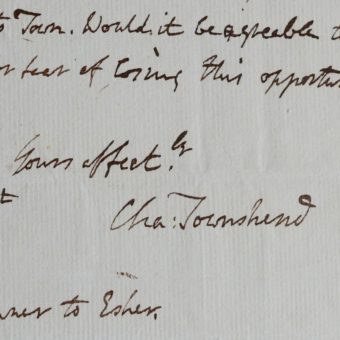 to Town. Would it be agreable t
or fear of losing this opportu
Yours affect.ly
t
Cha: Townshend
nner to Esher.